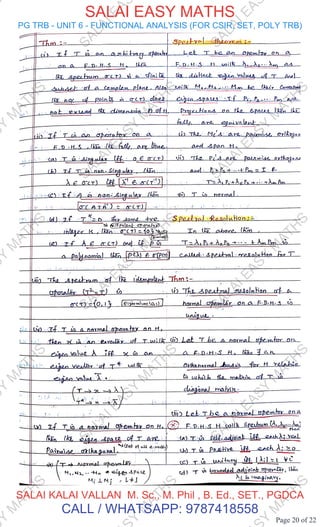 SALAI EASY MATHS
PG TRB - UNIT 6 - FUNCTIONAL ANALYSIS (FOR CSIR, SET, POLY TRB)
Thm :-
(i) If T is an arbitrary operator
on a F.D.H.S H, then
the spectrum σ(T) is a finite
subset of a complex plane. Also
the no of points in σ(T) does
not exceed the dimension n of H.
(ii) If T is an operator on a
F.D.H.S, then the folls. are true.
(a) T is singular iff 0 ∈ σ(T)
(b) If T is non-singular, then
λ ∈ σ(T) iff λ⁻¹ ∈ σ(T⁻¹)
(c) If A is non-singular, then
σ(ATA⁻¹) = σ(T)
(e) If λ ∈ σ(T) and if P is
a polynomial then P(λ) ∈ σ(P(T))
(iii) The spectrum of the idempotent
operator (T²=T) is
σ(T) = {0,1}
(iv) If T is a normal operator on H,
then x is an eigenvector of T with
eigen value λ iff x is an
eigen vector of T* with
eigen value λ̄.
T → x → λ
T* → x → λ̄
(v) If T is a normal operator on H,
then the eigen space of T are
Pairwise orthogonal.
T → Normal operator
M₁, M₂, ... Mₙ → eigen space
Spectral Theorem :-
Let T be an operator on a
F.D.H.S H with λ₁, λ₂, ... λm as
the distinct eigen values of T and
with M₁, M₂, ... Mm be their
eigen spaces. If P₁, P₂, ... Pm are
Projections on the spaces then the
folls. are equivalent.
(i) The Mi's are pairwise orthogonal
and span H.
(ii) The Pi's are pairwise orthogonal
and P₁+P₂+...+Pm = I &
T = λ₁P₁+λ₂P₂+...+λmPm
(iii) T is normal.
Spectral Resolution :-
In the above thm,
T = λ₁P₁+λ₂P₂+...+λmPm is
called spectral resolution for T
Thm :-
(i) The spectral resolution of a
normal operator on a F.D.H.S is
unique.
(ii) Let T be a normal operator on
a F.D.H.S H, then ∃ an
orthonormal basis for H relative
to which the matrix of T is
diagonal matrix.
(iii) Let T be a normal operator on a
F.D.H.S H with spectrum
(a) T is self-adjoint iff each λi real
(b) T is Positive iff each λi ≥ 0
(c) T is unitary iff |λi| = 1 ∀i
SALAI KALAI VALLAN M. Sc., M. Phil , B. Ed., SET., PGDCA
CALL / WHATSAPP: 9787418558
Page 20 of 22